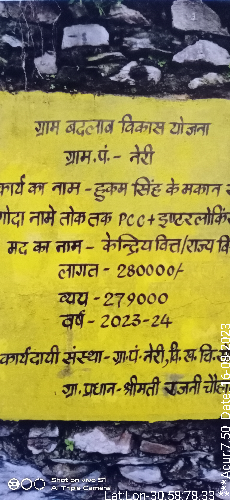 ग्राम बदलाव विकास योजना
ग्राम.पं.- नेरी
कार्य का नाम - हुकम सिंह के मकान से
गोदा नामे तोक तक PCC+इण्टरलोकिं
मद का नाम - केन्द्रिय वित्त/राज्य वि
लागत - 280000/-
व्यय - 279000
वर्ष - 2023-24
कार्यदायी संस्था - ग्रा.पं. नेरी, वि.ख.
ग्रा. प्रधान - श्रीमती रजनी चौ
Shot on vivo S1
AI Triple Camera
LatLon-30.59,78.33
Acur:7.50 Date:16-09-2023